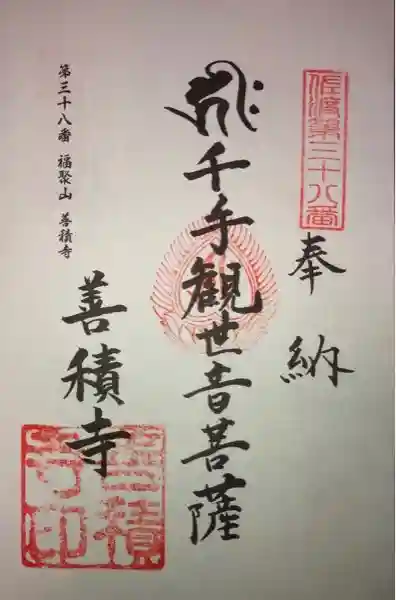 佐渡第三十八番
奉納
千手観世音菩薩
第三十八番 福聚山 善積寺
善積寺
善積寺印